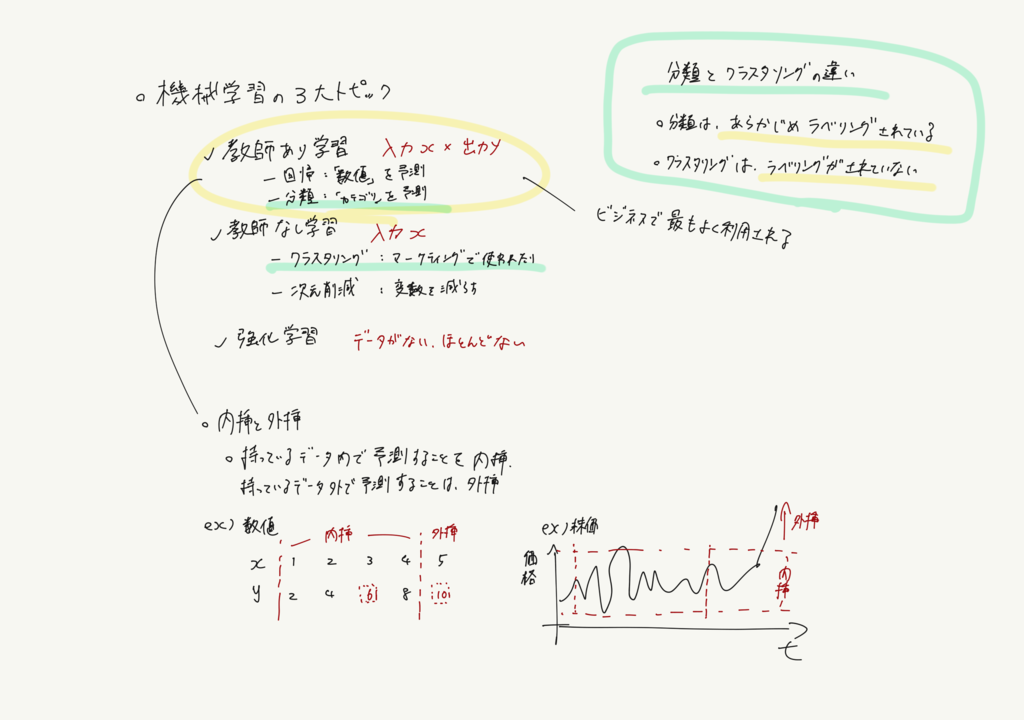 ○ 機械学習の3大トピック
✓ 教師あり学習 入力x × 出力y
- 回帰:「数値」を予測
- 分類:「カテゴリ」を予測
✓ 教師なし学習 入力x
- クラスタリング:マーケティングで使われたり
- 次元削減:変数を減らす
✓ 強化学習 データがない、ほとんどない
分類とクラスタリングの違い
○分類は、あらかじめラベリングされている
○クラスタリングは、ラベリングがされていない
ビジネスで最もよく利用される
○ 内挿と外挿
○ 持っているデータ内で予測することを内挿.
持っているデータ外で予測することは、外挿
ex) 数値
内挿 外挿
x 1 2 3 4 5
y 2 4 6 8 10
ex) 株価
価格
外挿
内挿
t